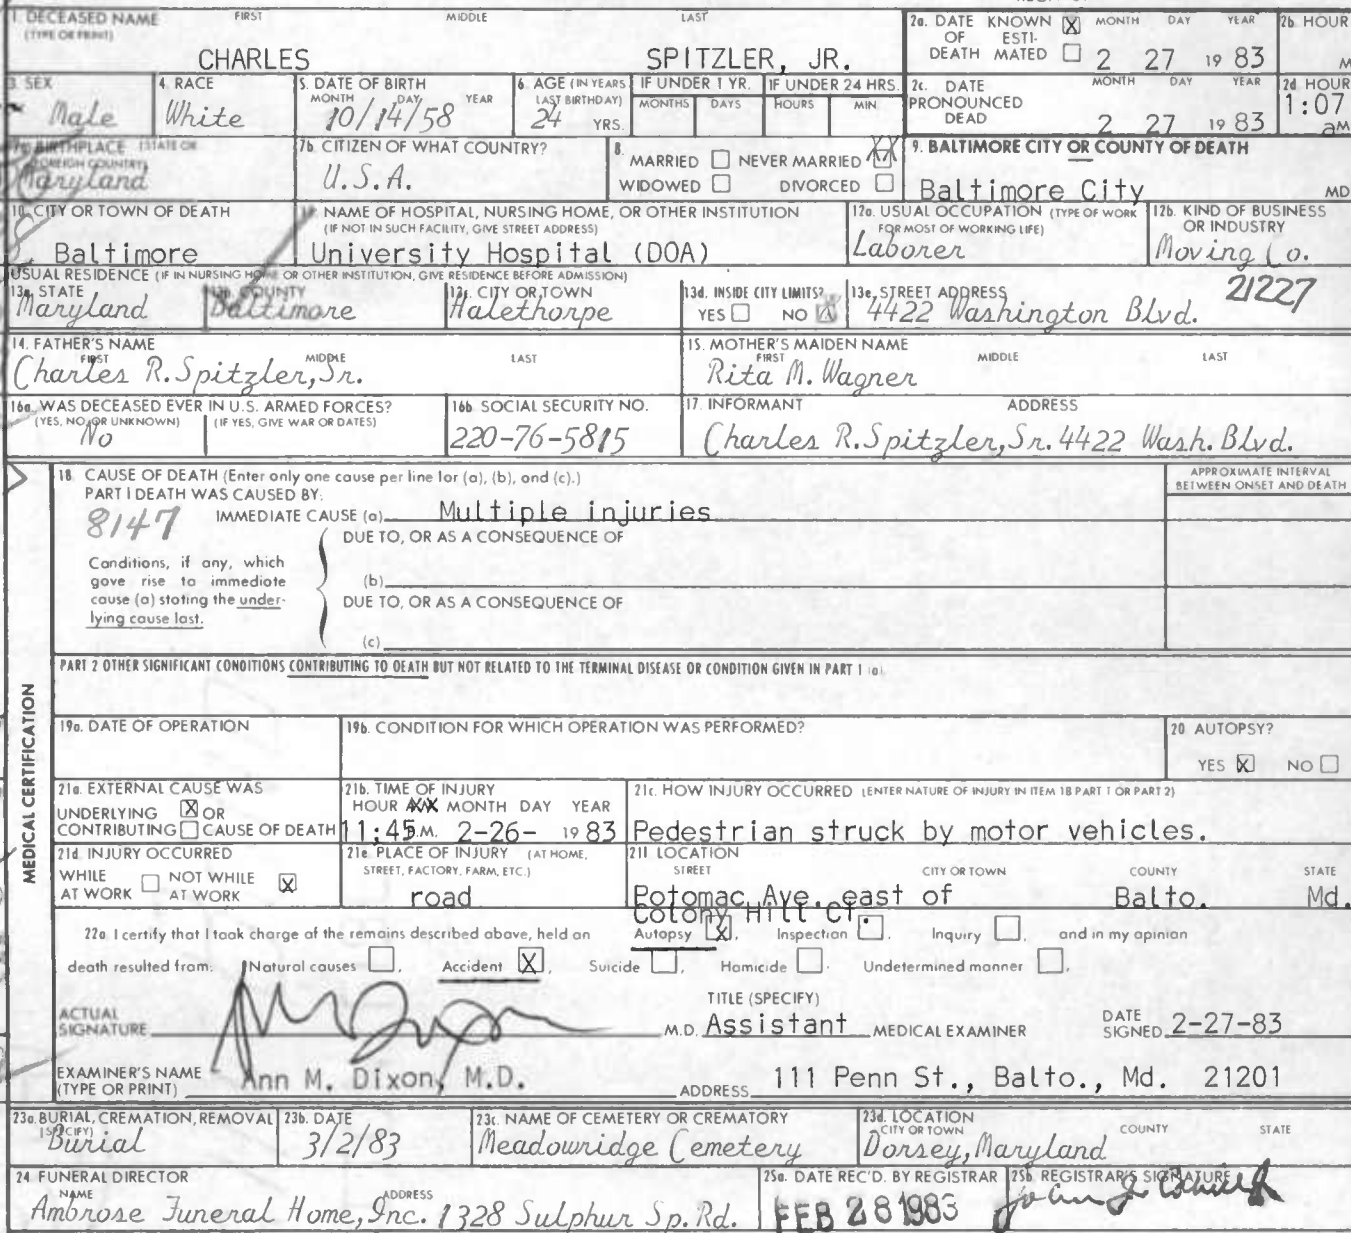 1. DECEASED NAME FIRST MIDDLE LAST
(TYPE OR PRINT)
CHARLES SPITZLER, JR.
2a. DATE KNOWN X MONTH DAY YEAR
OF ESTI-
DEATH MATED 2 27 19 83
2b. HOUR
M
3. SEX
Male
4. RACE
White
5. DATE OF BIRTH
MONTH DAY YEAR
10/14/58
6. AGE (IN YEARS
LAST BIRTHDAY)
24 YRS.
IF UNDER 1 YR.
MONTHS DAYS
IF UNDER 24 HRS.
HOURS MIN
2c. DATE MONTH DAY YEAR
PRONOUNCED
DEAD 2 27 19 83
2d HOUR
1:07
aM
7a. BIRTHPLACE (STATE OR
FOREIGN COUNTRY)
Maryland
7b. CITIZEN OF WHAT COUNTRY?
U.S.A.
8.
MARRIED NEVER MARRIED XX
WIDOWED DIVORCED
9. BALTIMORE CITY OR COUNTY OF DEATH
Baltimore City MD
10. CITY OR TOWN OF DEATH
Baltimore
11. NAME OF HOSPITAL, NURSING HOME, OR OTHER INSTITUTION
(IF NOT IN SUCH FACILITY, GIVE STREET ADDRESS)
University Hospital (DOA)
12a. USUAL OCCUPATION (TYPE OF WORK
FOR MOST OF WORKING LIFE)
Laborer
12b. KIND OF BUSINESS
OR INDUSTRY
Moving Co.
USUAL RESIDENCE (IF IN NURSING HOME OR OTHER INSTITUTION, GIVE RESIDENCE BEFORE ADMISSION)
13a. STATE
Maryland
13b. COUNTY
Baltimore
13c. CITY OR TOWN
Halethorpe
13d. INSIDE CITY LIMITS?
YES NO X
13e. STREET ADDRESS 21227
4422 Washington Blvd.
14. FATHER'S NAME
FIRST MIDDLE LAST
Charles R. Spitzler, Sr.
15. MOTHER'S MAIDEN NAME
FIRST MIDDLE LAST
Rita M. Wagner
16a. WAS DECEASED EVER IN U.S. ARMED FORCES?
(YES, NO, OR UNKNOWN) (IF YES, GIVE WAR OR DATES)
No
16b. SOCIAL SECURITY NO.
220-76-5815
17. INFORMANT ADDRESS
Charles R. Spitzler, Sr. 4422 Wash. Blvd.
MEDICAL CERTIFICATION
18. CAUSE OF DEATH (Enter only one cause per line for (a), (b), and (c).)
PART I DEATH WAS CAUSED BY:
8147
IMMEDIATE CAUSE (a) Multiple injuries
DUE TO, OR AS A CONSEQUENCE OF
Conditions, if any, which
gave rise to immediate
cause (a) stating the under-
lying cause last.
(b)
DUE TO, OR AS A CONSEQUENCE OF
(c)
APPROXIMATE INTERVAL
BETWEEN ONSET AND DEATH
PART 2 OTHER SIGNIFICANT CONDITIONS CONTRIBUTING TO DEATH BUT NOT RELATED TO THE TERMINAL DISEASE OR CONDITION GIVEN IN PART 1 (a)
19a. DATE OF OPERATION
19b. CONDITION FOR WHICH OPERATION WAS PERFORMED?
20. AUTOPSY?
YES X NO
21a. EXTERNAL CAUSE WAS
UNDERLYING X OR
CONTRIBUTING CAUSE OF DEATH
21b. TIME OF INJURY
HOUR MONTH DAY YEAR
11:45 P.M. 2-26- 19 83
21c. HOW INJURY OCCURRED (ENTER NATURE OF INJURY IN ITEM 18 PART 1 OR PART 2)
Pedestrian struck by motor vehicles.
21d. INJURY OCCURRED
WHILE NOT WHILE
AT WORK AT WORK X
21e. PLACE OF INJURY (AT HOME,
STREET, FACTORY, FARM, ETC.)
road
21f. LOCATION
STREET CITY OR TOWN COUNTY STATE
Potomac Ave. east of Balto. Md.
Colony Hill Ct.
22a. I certify that I took charge of the remains described above, held an Autopsy X, Inspection , Inquiry , and in my opinion
death resulted from: Natural causes , Accident X, Suicide , Homicide , Undetermined manner .
ACTUAL
SIGNATURE M.D.
TITLE (SPECIFY)
Assistant MEDICAL EXAMINER
DATE
SIGNED 2-27-83
EXAMINER'S NAME
(TYPE OR PRINT) Ann M. Dixon, M.D.
ADDRESS 111 Penn St., Balto., Md. 21201
23a. BURIAL, CREMATION, REMOVAL
(SPECIFY)
Burial
23b. DATE
3/2/83
23c. NAME OF CEMETERY OR CREMATORY
Meadowridge Cemetery
23d. LOCATION
CITY OR TOWN COUNTY STATE
Dorsey, Maryland
24 FUNERAL DIRECTOR
NAME ADDRESS
Ambrose Funeral Home, Inc. 1328 Sulphur Sp. Rd.
25a. DATE REC'D. BY REGISTRAR
FEB 28 1983
25b. REGISTRAR'S SIGNATURE